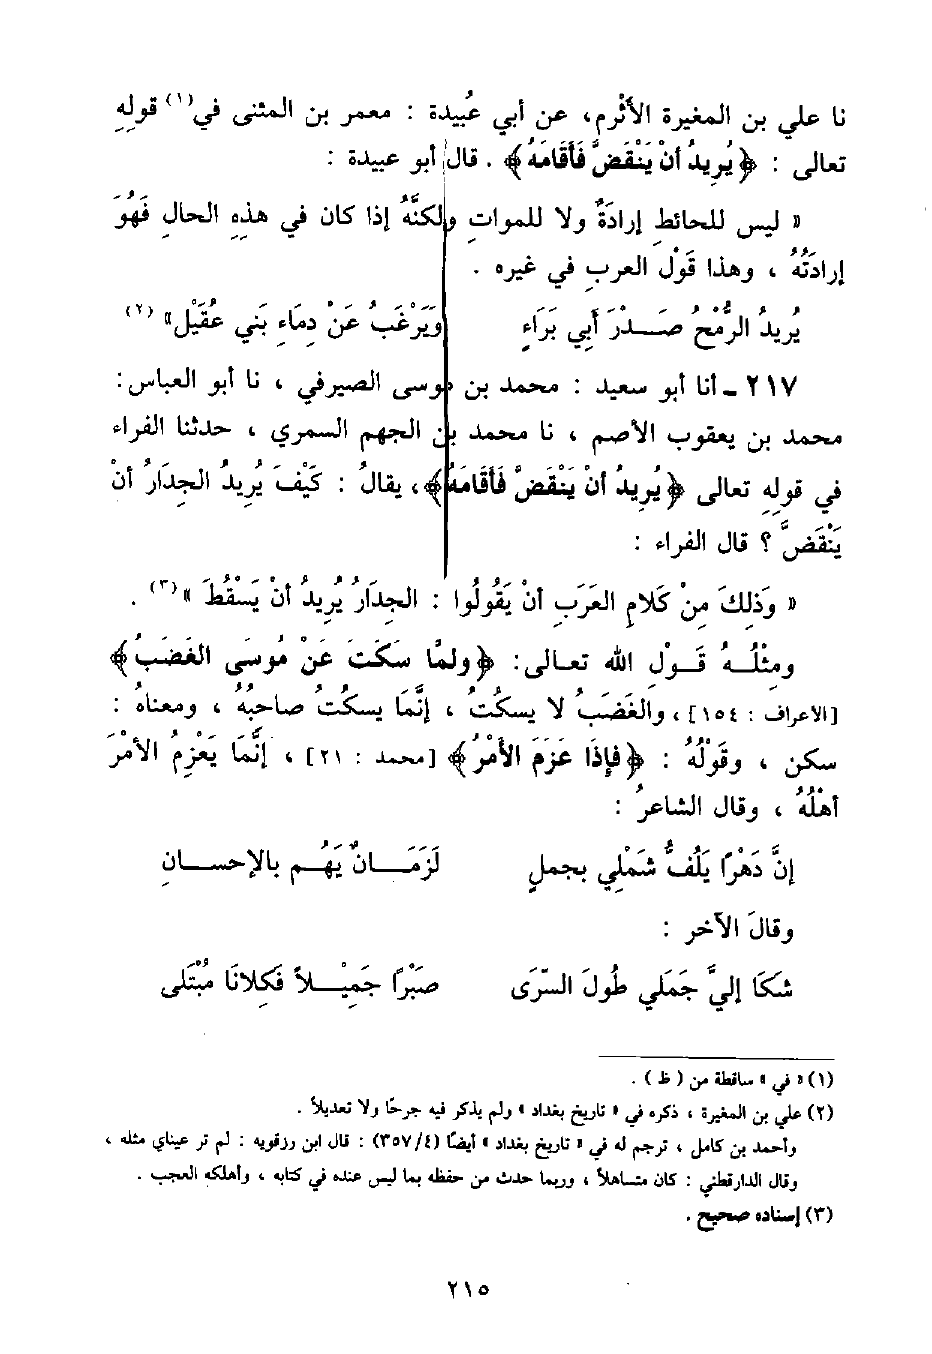 نا علي بن المغيرة الأَثْرم، عن أبي عُبيدة : معمر بن المثنى في(١) قولِهِ
تعالى : ﴿يُرِيدُ أنْ يَنْقَضَّ فَأَقَامَهُ﴾ . قال أبو عبيدة :
« ليس للحائطِ إرادَةٌ ولا للمواتِ ولكنَّهُ إذا كان في هذِهِ الحالِ فَهُوَ
إرادَتُهُ ، وهذا قَوْلُ العربِ في غيره .
يُريدُ الرُّمْحُ صَـــدْرَ أَبِي بَرَاءٍ وَيَرْغَبُ عَنْ دِمَاءِ بَنِي عُقَيْلِ» (٢)
٢١٧ ـ أنا أبو سعيد : محمد بن موسى الصيرفي ، نا أبو العباس:
محمد بن يعقوب الأصم ، نا محمد بن الجهم السمري ، حدثنا الفراء
في قولِهِ تعالى ﴿يُرِيدُ أنْ يَنْقَضَّ فَأَقَامَهُ﴾، يقالُ : كَيْفَ يُرِيدُ الجِدَارُ أنْ
يَنْقَضَّ ؟ قال الفراء :
« وَذلِكَ مِنْ كَلامِ العَرَبِ أنْ يَقُولُوا : الجِدَارُ يُرِيدُ أنْ يَسْقُطَ »(٣) .
ومِثْلُـهُ قَـوْلُ الله تعـالى: ﴿ولمَّا سَكَتَ عَنْ مُوسَى الغَضَبُ﴾
[الأعراف : ١٥٤] ، والغَضَبُ لا يسكتُ ، إنَّمَا يسكتُ صاحبُهُ ، ومعناهُ :
سكن ، وقَوْلُهُ : ﴿فإذَا عَزَمَ الأَمْرُ﴾ [محمد : ٢١] ، إنَّمَا يَعْزِمُ الأمْرَ
أهْلُهُ ، وقال الشاعرُ :
إنَّ دَهْرًا يَلُفُّ شَمْلِي بجملٍ لَزَمَــانٌ يَهُــم بالإحســانِ
وقالَ الآخر :
شكَا إليَّ جَمَلي طُولَ السّرَى صَبْرًا جَمِيْــلاً فَكِلانَا مُبْتَلى
(١) « في » ساقطة من ( ظ ) .
(٢) علي بن المغيرة ، ذكره في « تاريخ بغداد » ولم يذكر فيه جرحًا ولا تعديلاً .
وأحمد بن كامل ، ترجم له في « تاريخ بغداد » أيضًا (٣٥٧/٤) : قال ابن رزقويه : لم تر عيناي مثله ،
وقال الدارقطني : كان متساهلاً ، وربما حدث من حفظه بما ليس عنده في كتابه ، وأهلكه العجب .
(٣) إسناده صحيح .
٢١٥